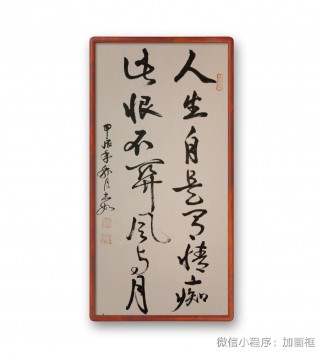 人生自是有情痴
此恨不关风与月
甲辰年
微信小程序：加画框